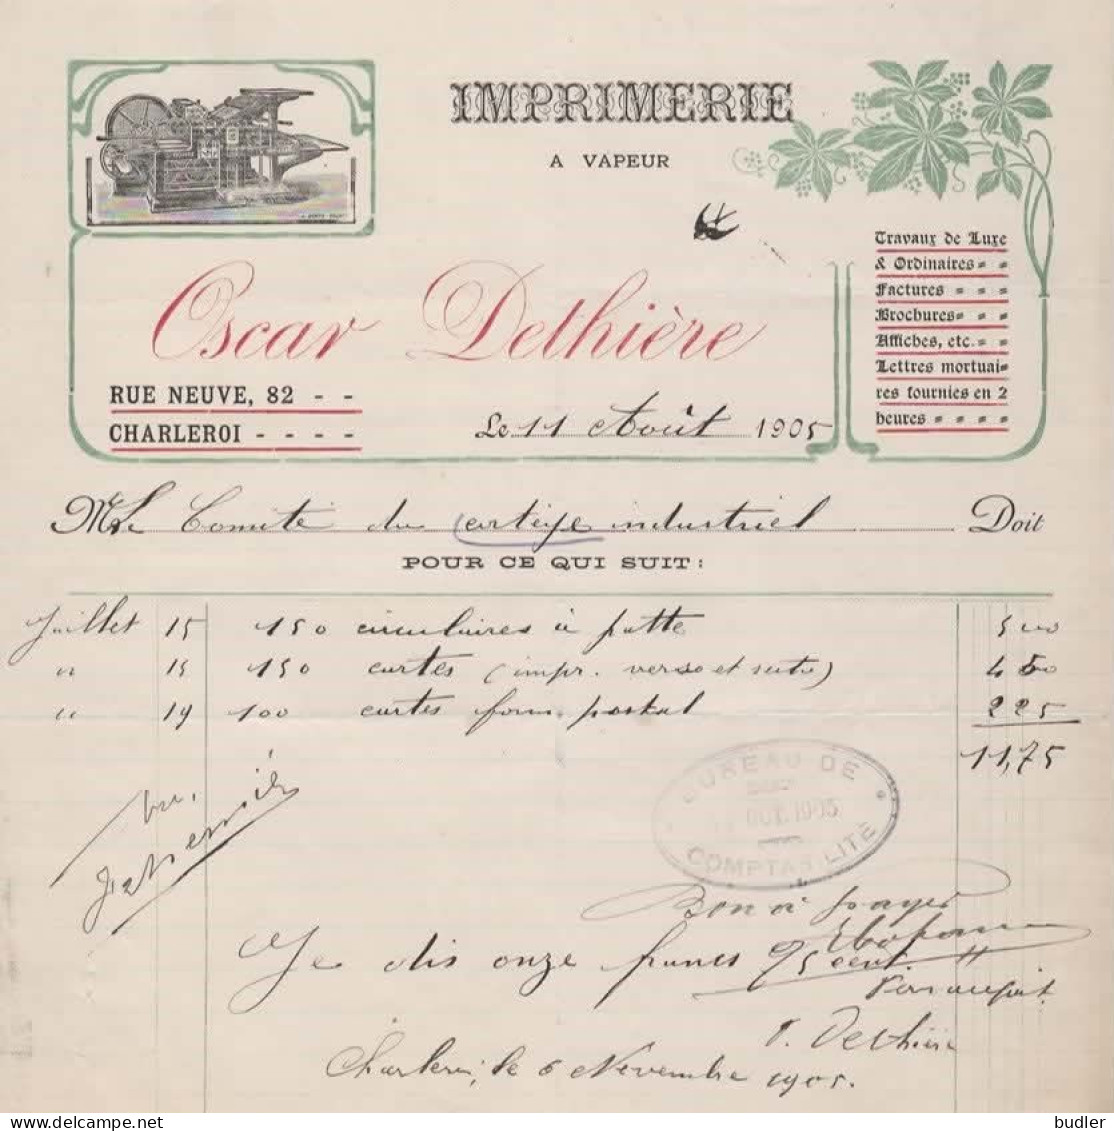 IMPRIMERIE
A VAPEUR
Travaux de Luxe
& Ordinaires
Factures
Brochures
Affiches, etc.
Lettres mortuai=
res fournies en 2
heures
Oscar Dethière
RUE NEUVE, 82 - -
CHARLEROI - - - -
Le 11 Août 1905
M Le Comité du cortège industriel Doit
POUR CE QUI SUIT :
Juillet 15 150 circulaires à patte 5 00
" 15 150 cartes (impr. verso et recto) 4 50
" 19 100 cartes form. postal 2 25
11,75
BUREAU DE
OCT. 1905
COMPTABILITÉ
Vu,
Bon à payer
Je dis onze francs 75 cent
Pour acquit
O. Dethière
Charleroi, le 6 Novembre 1905.
budler